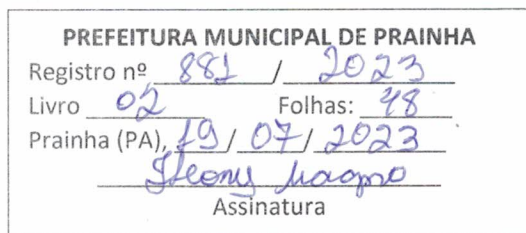 PREFEITURA MUNICIPAL DE PRAINHA
Registro nº 881 / 2023
Livro 02 Folhas: 48
Prainha (PA), 19/ 07/ 2023
Assinatura